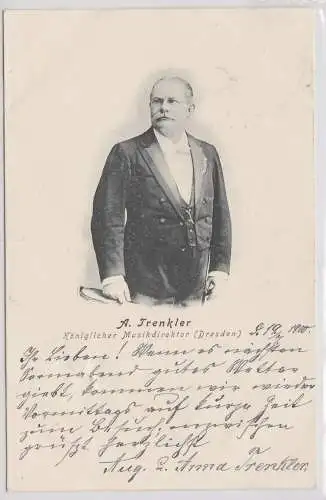 A. Trenkler
Königlicher Musikdirektor (Dresden)
d. 19/ 1900.
Ihr Lieben! Wenn es nächsten
Sonnabend gutes Wetter
giebt, kommen wir wieder
Vormittags auf kurze Zeit
zum Besuch; inzwischen
grüßt herzlichst
Aug. u. Anna Trenkler.